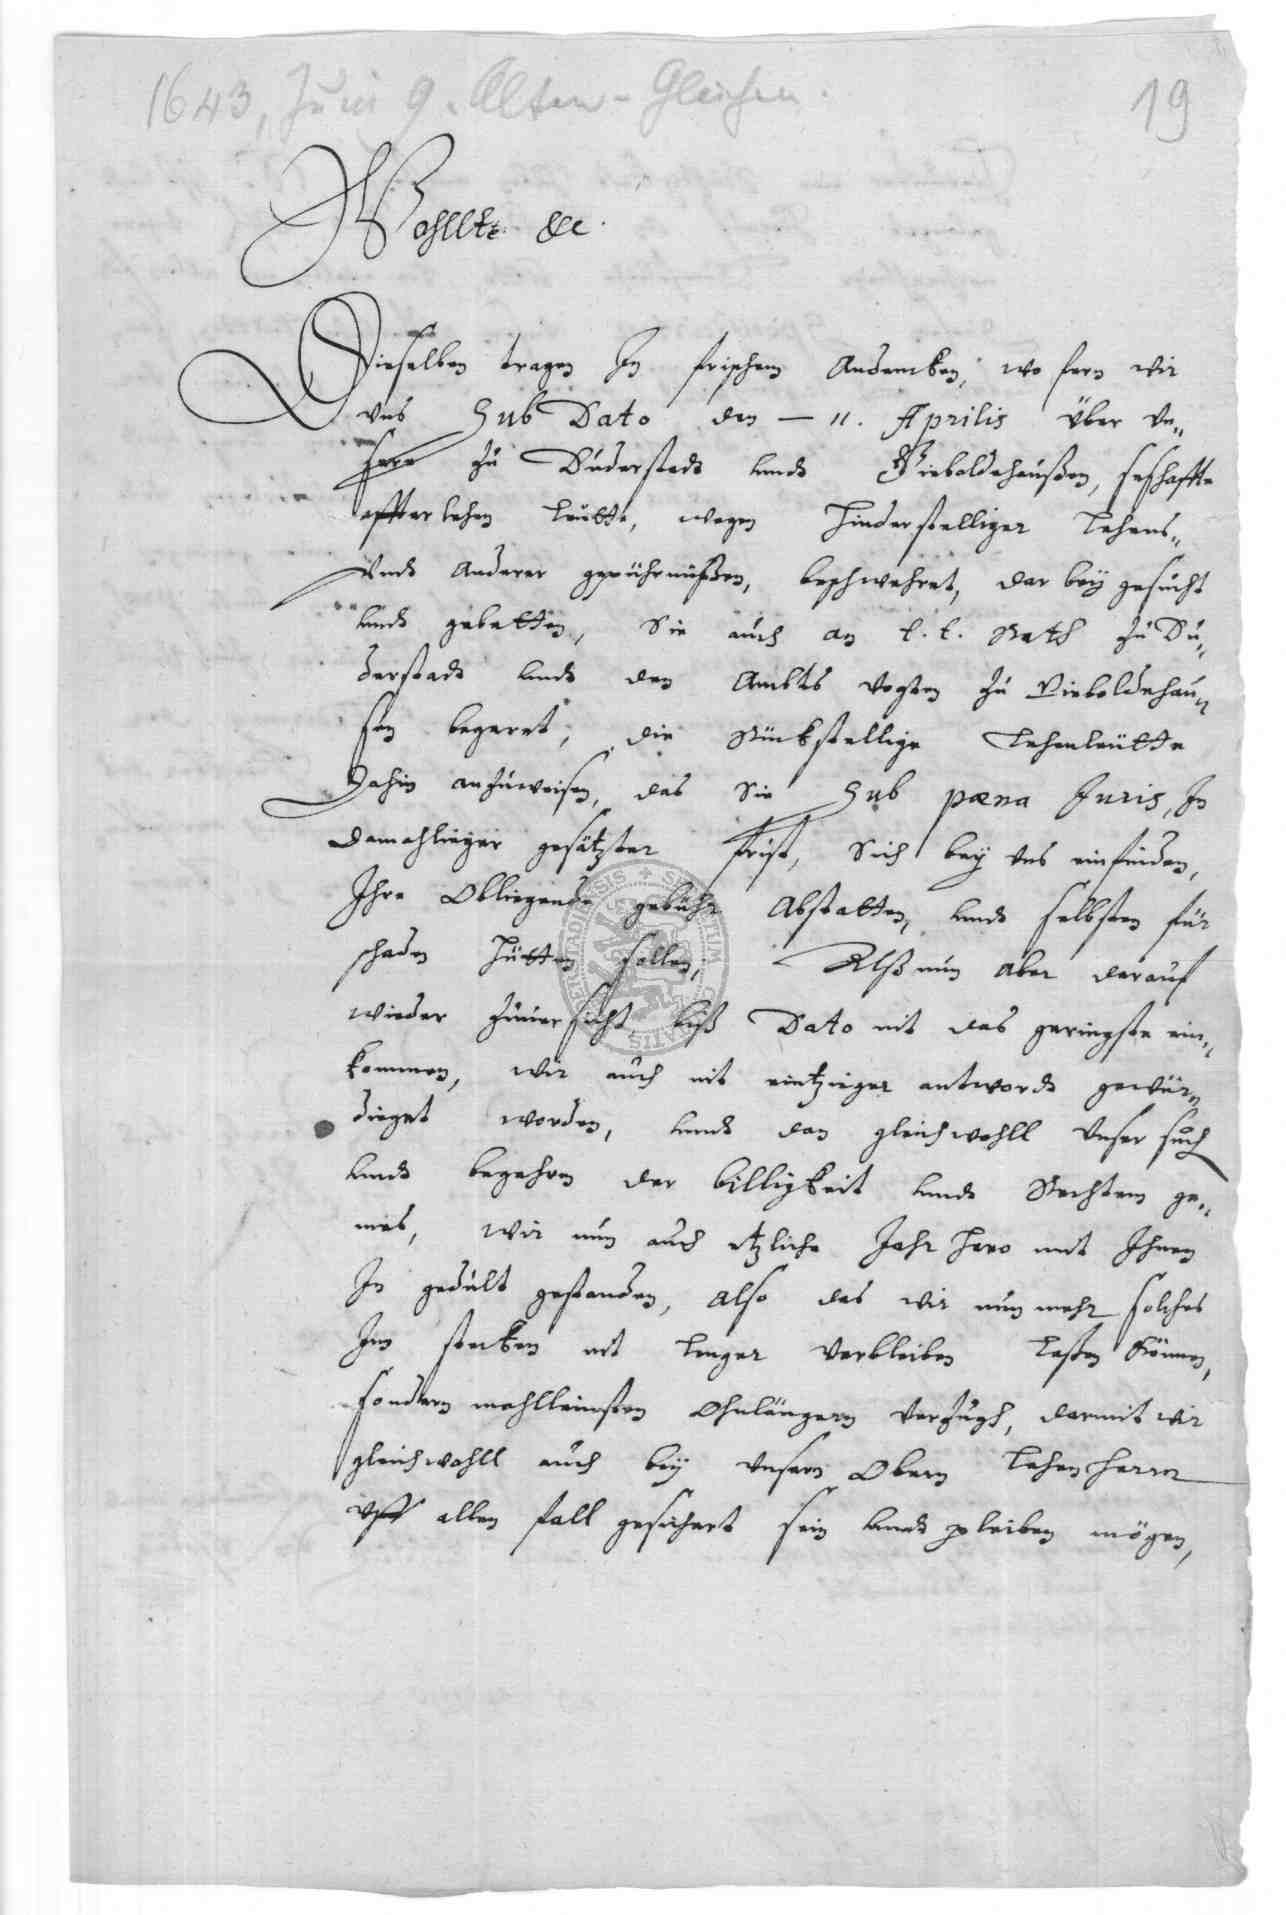 1643, Juni 9. Alten-Gleichen.
19
Wohllte &c.
Dieselben tragen In frischem Andencken, wo fern wir
vns Sub Dato den — 11. Aprilis über vn„
sere zu Duderstadt undt Gieboldehaußen, seßhaffte
affterlehen leütte, wegen hinderstelliger lehens„
Undt anderer gepührnüßen, beschwehret, dar bey gesucht
undt gebetten, Sie auch an E. E. Rath zu Du„
derstadt undt den Ambts vogten zu Gieboldehau„
sen begeret, die Rückstellige lehenleütte
Dahin anzuweisen, das Sie Sub pœna Juris, In
damahlieger gesätzter frist, Sich bey vns einfinden,
Ihre Obliegende gebühr Abstatten, undt selbsten für
schaden hütten sollen, Alß nun aber darauf
wieder zuuersicht biß Dato nit das geringste ein„
kommen, wir auch nit eintzieger antwordt gewür„
dieget worden, undt dan gleichwohll Unser such
undt begehren der billigkeit undt Rechtem ge„
mes, wir nun auch etzliche Jahr hero mit Ihnen
In gedult gestanden, also das wir nun mehr solches
Im stecken nit lenger verbleiben laßen können,
sondern ohnlängern verzugh, darmit wir
gleichwohll auch bey vnserm Obern lehenherrn
vff allen fall gesichert sein undt pleiben mögen,
SIGILLUM CIVITATIS